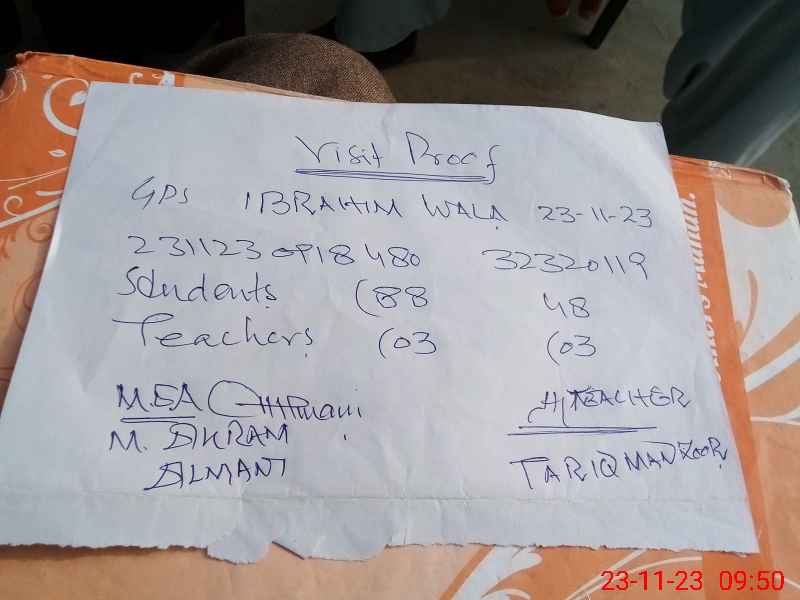 Visit Proof
GPS IBRAHIM WALA 23-11-23
231123 0918480 32320119
Students (88 48
Teachers (03 (03
MEA H/TEACHER
M. AKRAM TARIQ MANZOOR
ALMANI
23-11-23 09:50